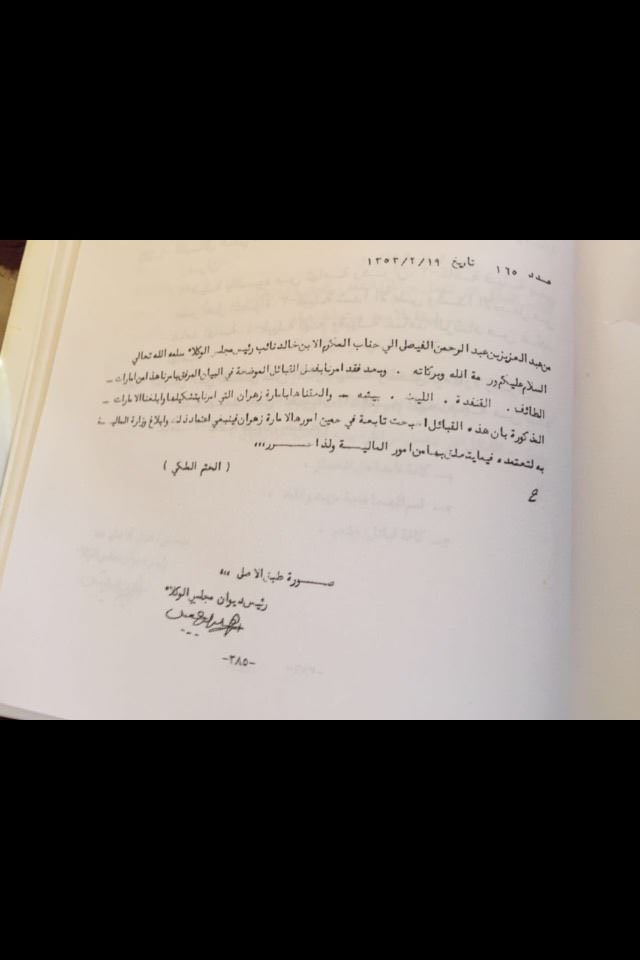 عدد ١٦٥ تاريخ ١٣٥٣/٢/١٩
من عبد العزيز بن عبد الرحمن الفيصل الي جناب المكرم الابن خالد نائب رئيس مجلس الوكلاء سلمه الله تعالي
السلام عليكم ورحمة الله وبركاته . وبعد فقد امرنا بفصل القبائل الموضحة في البيان المرفق بامرنا هذا من امارات _
الطائف . القنفدة . الليث . بيشه _ والحقناها بامارة زهران التي امرنا بتشكيلها وابلغنا الامارات _
المذكورة بان هذه القبائل اصبحت تابعة في جميع امورها لامارة زهران فينبغي اعتماد ذلك وابلاغ وزارة الماليـ ـة
به لتعتمده فيما يتعلق بها من امور الماليــة ولذا حــــرر ،،،
( الختم الملكي )
ع
صـــورة طبق الاصل ،،،
رئيس ديوان مجلس الوكلاء
-٣٨٥-